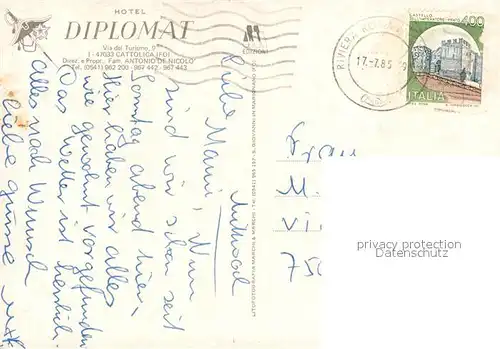 HOTEL
DIPLOMAT
Via del Turismo, 9
I - 47033 CATTOLICA (FO)
Direz. e Propr.: Fam. ANTONIO DE NICOLO'
Tel. (0541) 962 200 - 967 442 - 967 443
EDIZIONI
Mittwoch
Liebe Mami, Nun
sind wir schon seit
Sonntag abend hier,
Hier haben wir alles
wie gewohnt vorgefunden
Das Wetter ist herrlich.
Alles nach Wunsch
liebe Grüsse
LITOFOTOGRAFIA MARCHI & MARCHI
RIVIERA
17.-7.85
CASTELLO
400
ITALIA
Frau
M.
Vi
750
privacy protection
Datenschutz